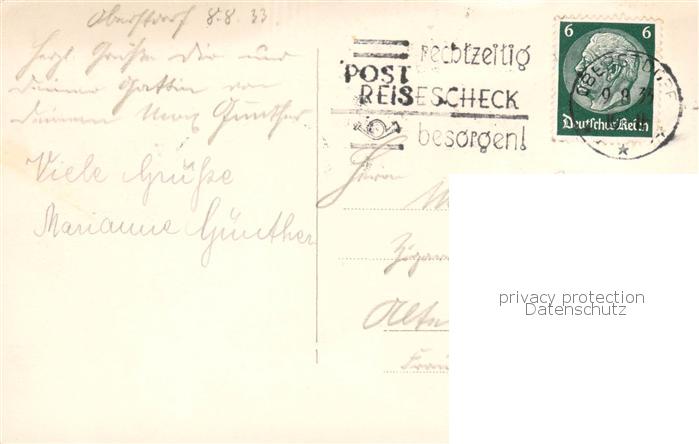 Oberstdorf 8.8.33
Herzl. Grüße Dir und
Deiner Gattin von
Deinem Max Günther
Viele Grüße
Marianne Günther
rechtzeitig
POST
REISESCHECK
besorgen!
6 6
Deutsches Reich
OBERSTDORF
9 8
Herrn
privacy protection
Datenschutz